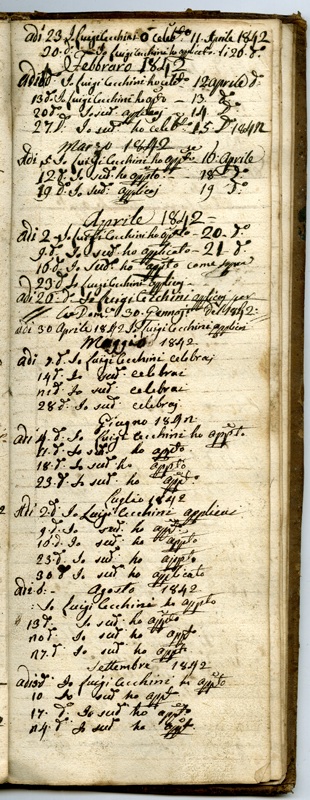 adi 23. Io Luigi Cecchini ò celeb.to 11. Aprile 1842
20. d.o Io Luigi Cecchini ho applicato li 20. d.o
Febbraro 1842
adi 6 d.o Io Luigi Cecchini ho celeb.to 12 Aprile d.o
13. d.o Io Luigi Cecchini ho app.to — 13. d.o
20 d.o Io sud.o applicaj 14. d.o
27. d.o Io sud.o ho celeb.to 15. d.o 1842
Marzo 1842
adi 5. Io Luigi Cecchini ho app.to 16. Aprile
12. d.o Io sud.o ho app.to — 18. d.o
19. d.o Io sud.o applicaj 19. d.o
Aprile 1842 —
adi 2 — Io Luigi Cecchini ho app.to — 20 — d.o
9. d.o Io sud.o ho applicato — 21. d.o
16. d.o Io sud.o ho app.to come sopra
23. d.o Io Luigi Cecchini applicaj
adi 26. d.o Io Luigi Cecchini applicaj per
la Dom. 30. del 1842.
adi 30 Aprile 1842 Io Luigi Cecchini applicai
Maggio 1842
adi 7. d.o Io Luigi Cecchini celebraj
14. d.o Io sud.o celebrai
21. d.o Io sud.o celebrai
28. d.o Io sud.o celebraj
Giugno 1842
adi 4. d.o Io Luigi Cecchini ho app.to
11. d.o Io sud.o ho app.to
18. d.o Io sud.o ho app.to
23. d.o Io sud.o ho app.to
Luglio 1842
Adi 2. d.o Io Luigi Cecchini applicai
9. d.o Io sud.o ho app.to
16. d.o Io sud.o ho app.to
23. d.o Io sud.o ho app.to
30. d.o Io sud.o ho applicato
adi 6. — Agosto 1842
Io Luigi Cecchini ho app.to
13. d.o Io sud.o ho app.to
20. d.o Io sud.o ho app.to
27. d.o Io sud.o ho app.to
Settembre 1842
adi 3. d.o Io Luigi Cecchini ho app.to
10 Io sud.o ho app.to
17. d.o Io sud.o ho app.to
24. d.o Io sud.o ho app.to